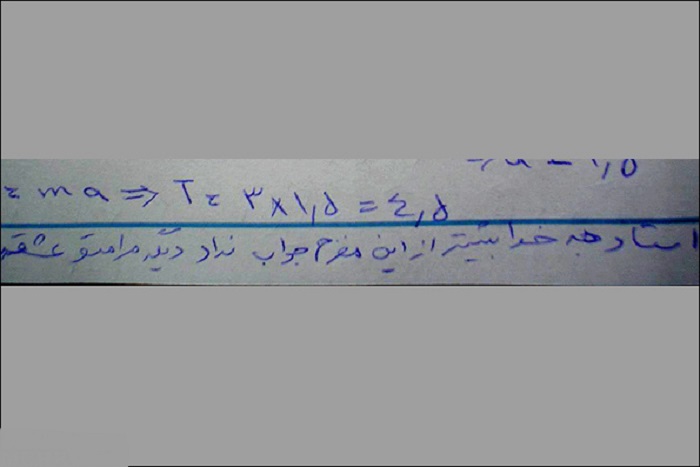 = ma ⇒ T = ۳×۱,۵ = ٤,۵
استاد به خدا بیشتر از این مخرج جواب نداد دیگه مرامتو عشقه